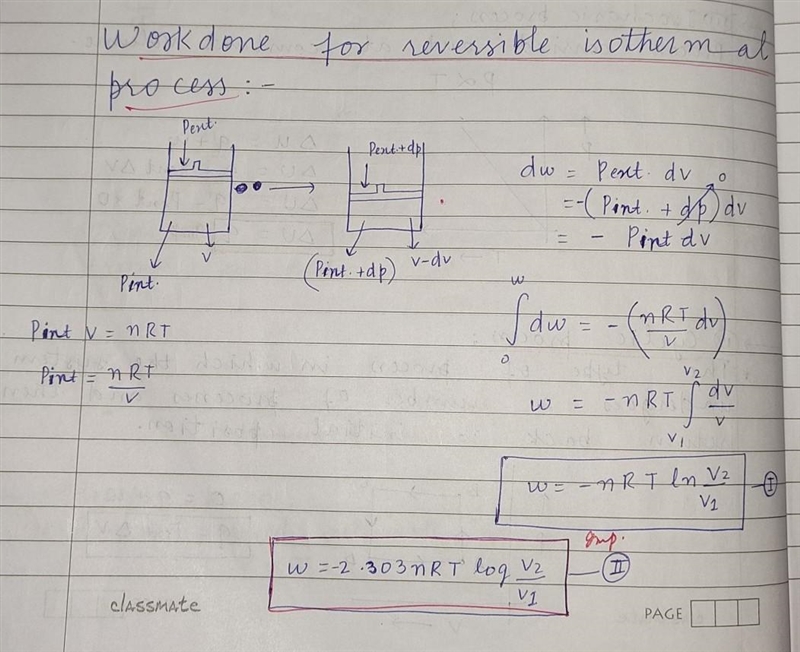 Workdone for reversible isothermal
process :-
Pext.
Pext.+dp
Pint.
V
(Pint.+dp)
V-dv
dw = Pext. dv
= -(Pint. + dp) dv
0
= - Pint dv
Pint V = nRT
Pint = nRT/V
∫₀ʷ dw = - (nRT/V dv)
w = -nRT ∫ᵥ₁ⱽ² dv/v
w = -nRT ln V2/V1 — I
Imp.
w = -2.303nRT log V2/V1 — II
classmate
PAGE